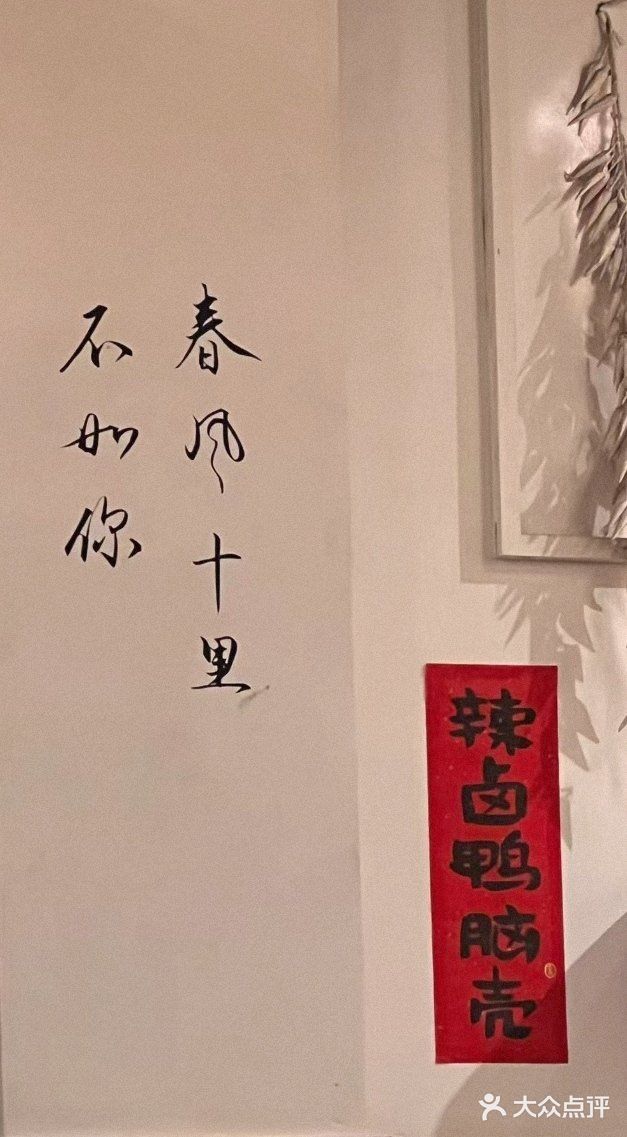 春风十里
不如你
辣卤鸭脑壳
大众点评